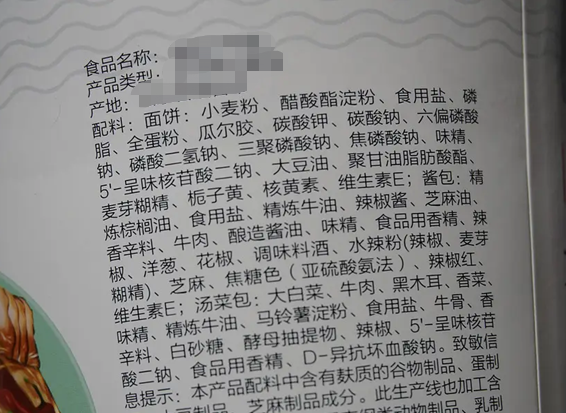 食品名称：
产品类型：
产地：
配料：面饼：小麦粉、醋酸酯淀粉、食用盐、磷
脂、全蛋粉、瓜尔胶、碳酸钾、碳酸钠、六偏磷酸
钠、磷酸二氢钠、三聚磷酸钠、焦磷酸钠、味精、
5'-呈味核苷酸二钠、大豆油、聚甘油脂肪酸酯、
麦芽糊精、栀子黄、核黄素、维生素E；酱包：精
炼棕榈油、食用盐、精炼牛油、辣椒酱、芝麻油、
香辛料、牛肉、酿造酱油、味精、食品用香精、辣
椒、洋葱、花椒、调味料酒、水辣粉(辣椒、麦芽
糊精)、芝麻、焦糖色（亚硫酸氨法）、辣椒红、
维生素E；汤菜包：大白菜、牛肉、黑木耳、香菜、
味精、精炼牛油、马铃薯淀粉、食用盐、牛骨、香
辛料、白砂糖、酵母抽提物、辣椒、5'-呈味核苷
酸二钠、食品用香精、D-异抗坏血酸钠。致敏信
息提示：本产品配料中含有麸质的谷物制品、蛋制
豆制品、芝麻制品成分。此生产线也加工含
类动物制品、乳制